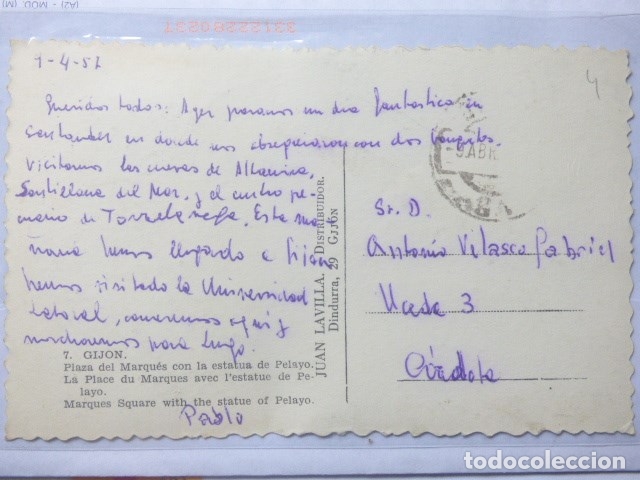 1-4-57
Queridos todos: Ayer pasamos un dia fantastico en
Santander en donde nos obsequiaron con dos banquetes.
Visitamos las cuevas de Altamira,
Santillana del Mar, y el centro pe-
cuario de Torrelavega. Esta ma-
ñana hemos llegado a Gijon
hemos visitado la Universidad
laboral, comeremos aqui y
marcharemos para Lugo.
Pablo
7. GIJON.
Plaza del Marqués con la estatua de Pelayo.
La Place du Marques avec l'estatue de Pe-
layo.
Marques Square with the statue of Pelayo.
JUAN LAVILLA. DISTRIBUIDOR.
Dindurra, 29 GIJON
4
ABR
Sr. D.
Antonio Velasco Gabriel
Uceda 3
Córdoba
todocoleccion.net